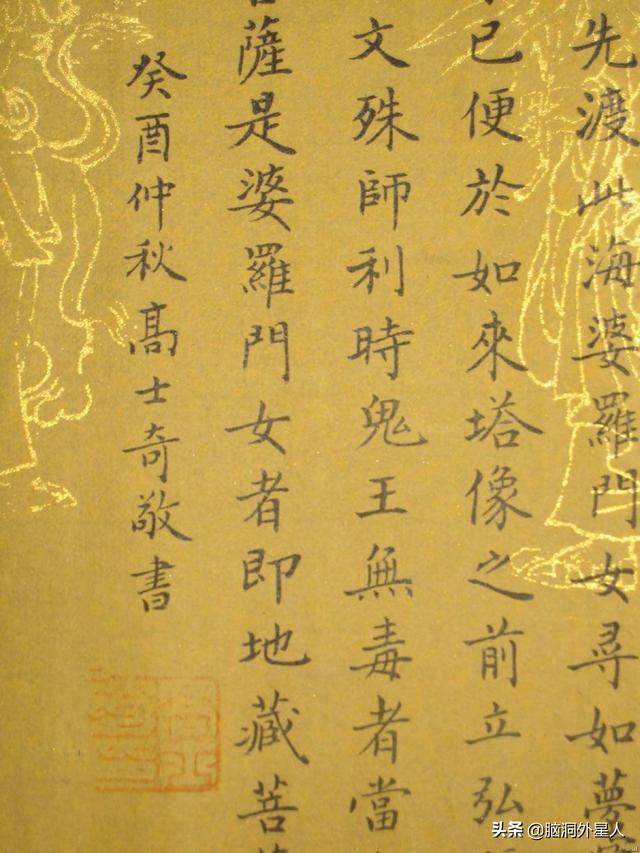 先渡此海婆羅門女尋如夢
已便於如來塔像之前立弘
文殊師利時鬼王無毒者當
薩是婆羅門女者即地藏菩
癸酉仲秋高士奇敬書
头条 @脑洞外星人